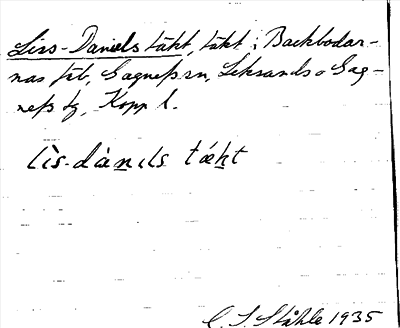 Liss-Daniels täkt, täkt i Backbodar-
nas fb, Gagnefs sn, Leksands o Gag-
nefs tg, Kopp l.
lìs-dànıls tækt
C. I. Ståhle 1935